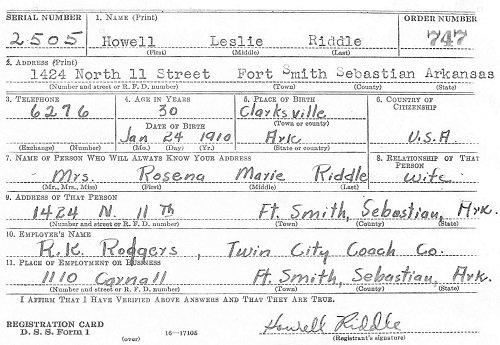 SERIAL NUMBER 1. NAME (Print) ORDER NUMBER
2505 Howell Leslie Riddle 747
(First) (Middle) (Last)
2. ADDRESS (Print)
1424 North 11 Street Fort Smith Sebastian Arkansas
(Number and street or R. F. D. number) (Town) (County) (State)
3. TELEPHONE 4. AGE IN YEARS 5. PLACE OF BIRTH 6. COUNTRY OF CITIZENSHIP
6276 30 Clarksville
(Town or county)
DATE OF BIRTH
Jan 24 1910 Ark U.S.A
(Exchange) (Number) (Mo.) (Day) (Yr.) (State or country)
7. NAME OF PERSON WHO WILL ALWAYS KNOW YOUR ADDRESS 8. RELATIONSHIP OF THAT PERSON
Mrs. Rosena Marie Riddle wife
(Mr., Mrs., Miss) (First) (Middle) (Last)
9. ADDRESS OF THAT PERSON
1424 N. 11 Th Ft. Smith, Sebastian, Ark.
(Number and street or R. F. D. number) (Town) (County) (State)
10. EMPLOYER'S NAME
R.K. Rodgers, Twin City Coach Co.
11. PLACE OF EMPLOYMENT OR BUSINESS
1110 Carnall Ft. Smith, Sebastian, Ark.
(Number and street or R. F. D. number) (Town) (County) (State)
I AFFIRM THAT I HAVE VERIFIED ABOVE ANSWERS AND THAT THEY ARE TRUE.
REGISTRATION CARD Howell Riddle
D. S. S. Form 1 16—17105 (Registrant's signature)
(over)